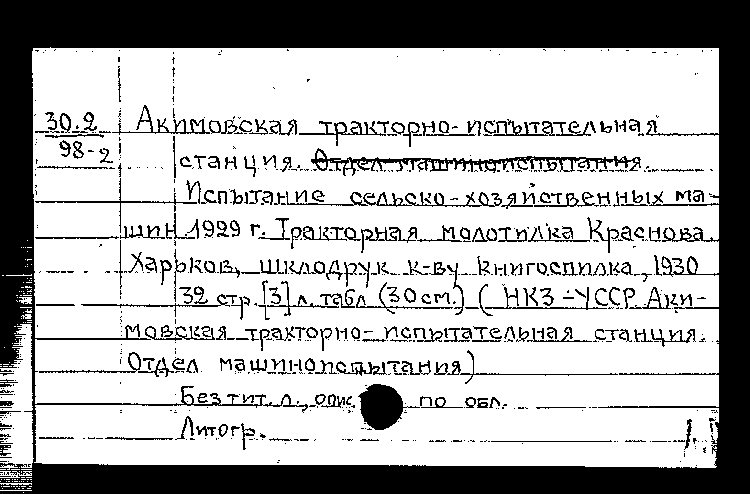 30.2 Акимовская тракторно-испытательная
98-2 станция. Отдел машиноиспытания.
Испытание сельско-хозяйственных ма-
шин 1929 г. Тракторная молотилка Краснова.
Харьков, шклодрук к-ву Книгоспилка, 1930
32 стр. [3] л. табл (30 см.) (НКЗ-УССР Аки-
мовская тракторно-испытательная станция.
Отдел машиноиспытания)
Без тит. л., опис. по обл.
Литогр.